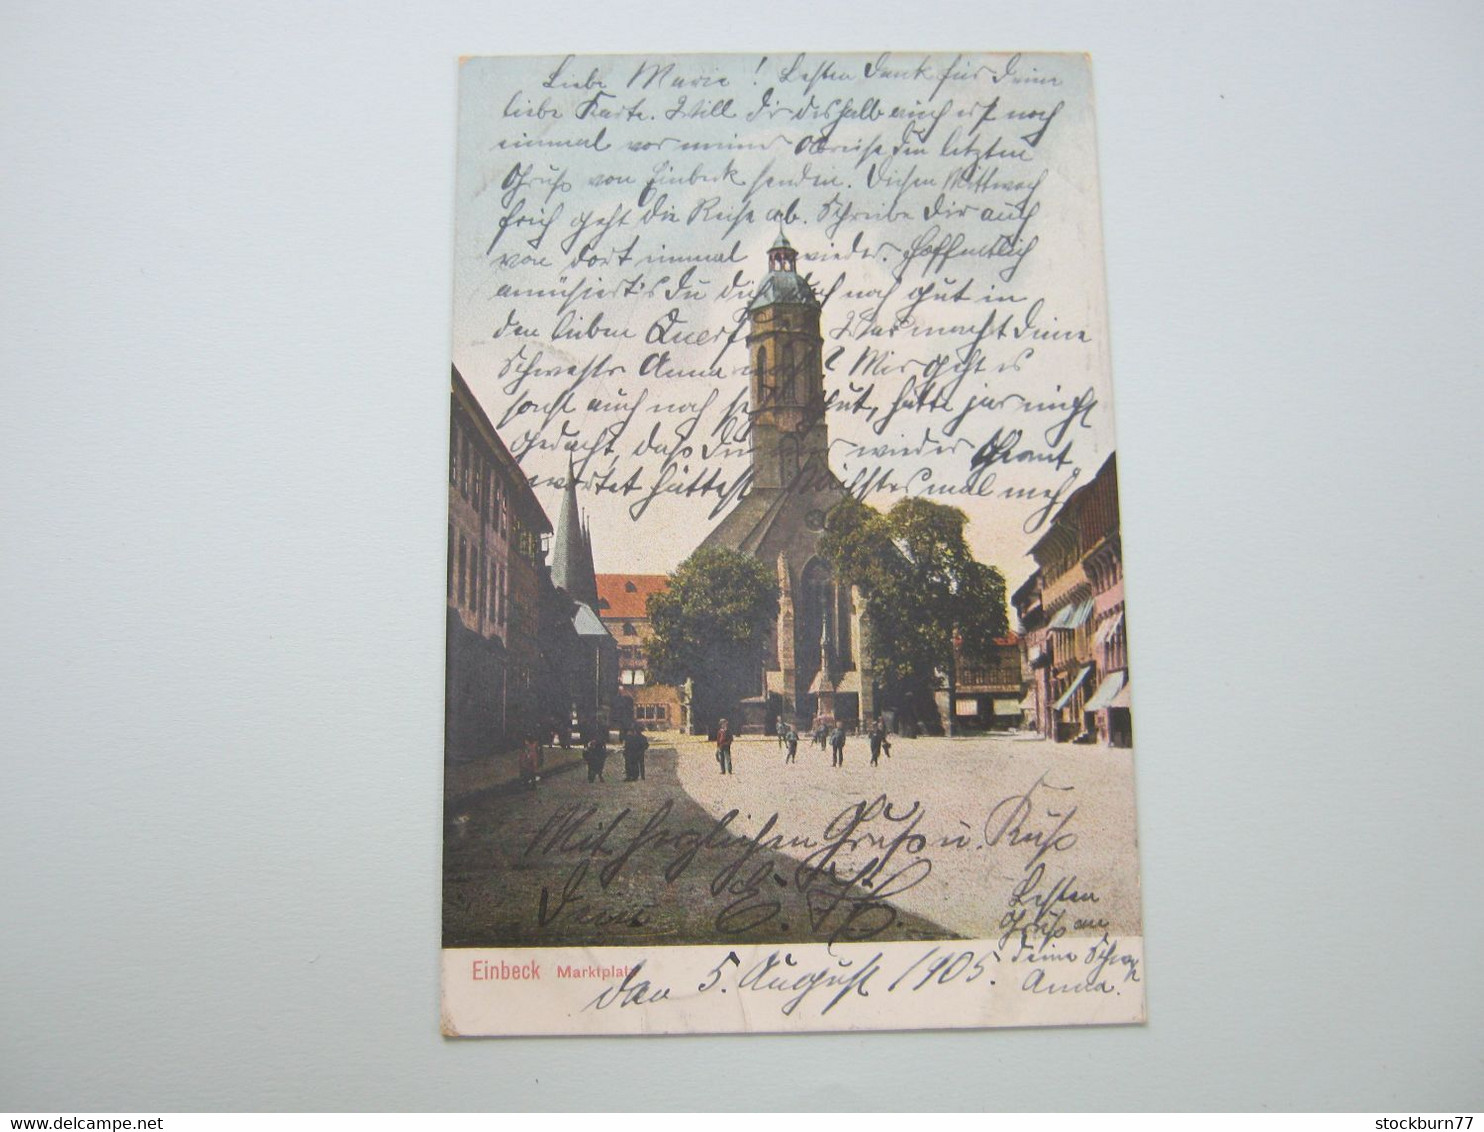 Liebe Marie! Besten Dank für Deine
liebe Karte. Will Dir deshalb auch erst noch
einmal vor meiner Abreise den letzten
Gruß von Einbeck senden. Diesen Mittwoch
früh geht die Reise ab. Schreibe Dir auch
von dort einmal wieder. Hoffentlich
amüsierst Du Dich noch gut in
den lieben Was macht Deine
Schwester Anna noch? Mir geht es
sonst auch noch sehr gut, hätte gar nicht
gedacht, daß Du mir wieder
hättest. Nächstes mal mehr
Mit herzlichen Gruß u. Kuß
Deine E. H.
Besten
Gruß an
Deine Schwest
Anna.
Einbeck Marktplatz
den 5. August 1905.
stockburn77